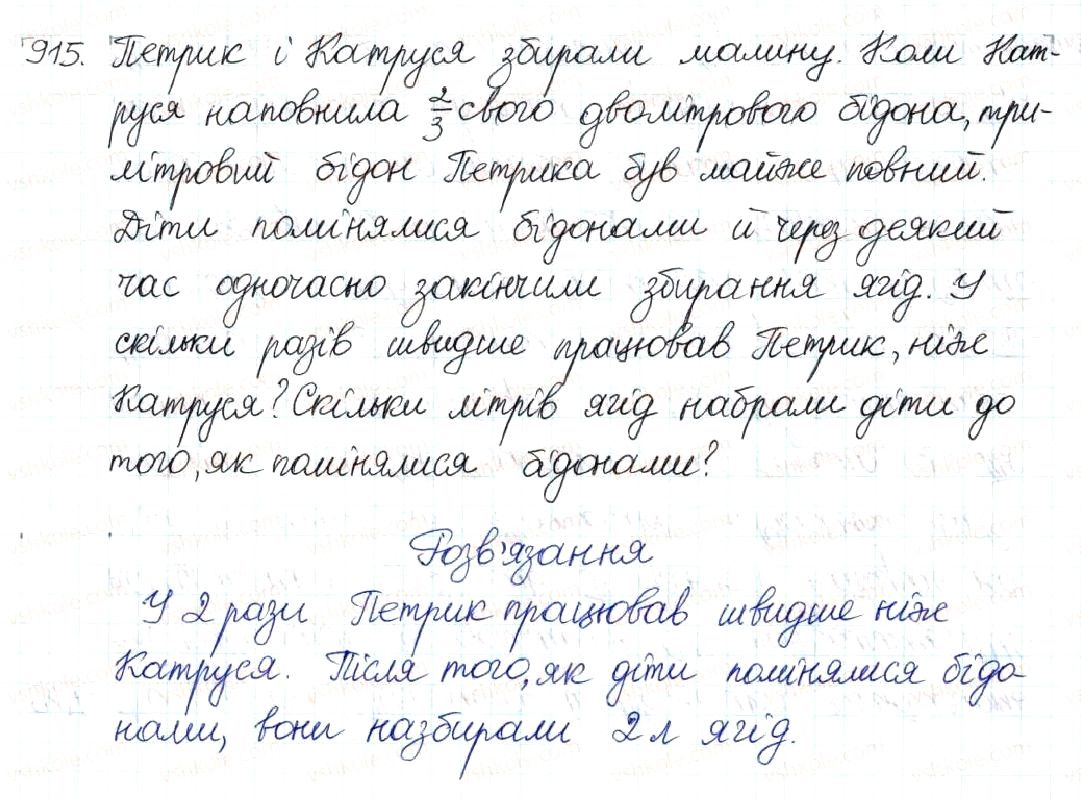 915. Петрик і Катруся збирали малину. Коли Кат-
руся наповнила 2/3 свого дволітрового бідона, три-
літровий бідон Петрика був майже повний.
Діти помінялися бідонами й через деякий
час одночасно закінчили збирання ягід. У
скільки разів швидше працював Петрик, ніж
Катруся? Скільки літрів ягід набрали діти до
того, як помінялися бідонами?
Розв'язання
У 2 рази Петрик працював швидше ніж
Катруся. Після того, як діти помінялися бідо-
нами, вони назбирали 2 л ягід.